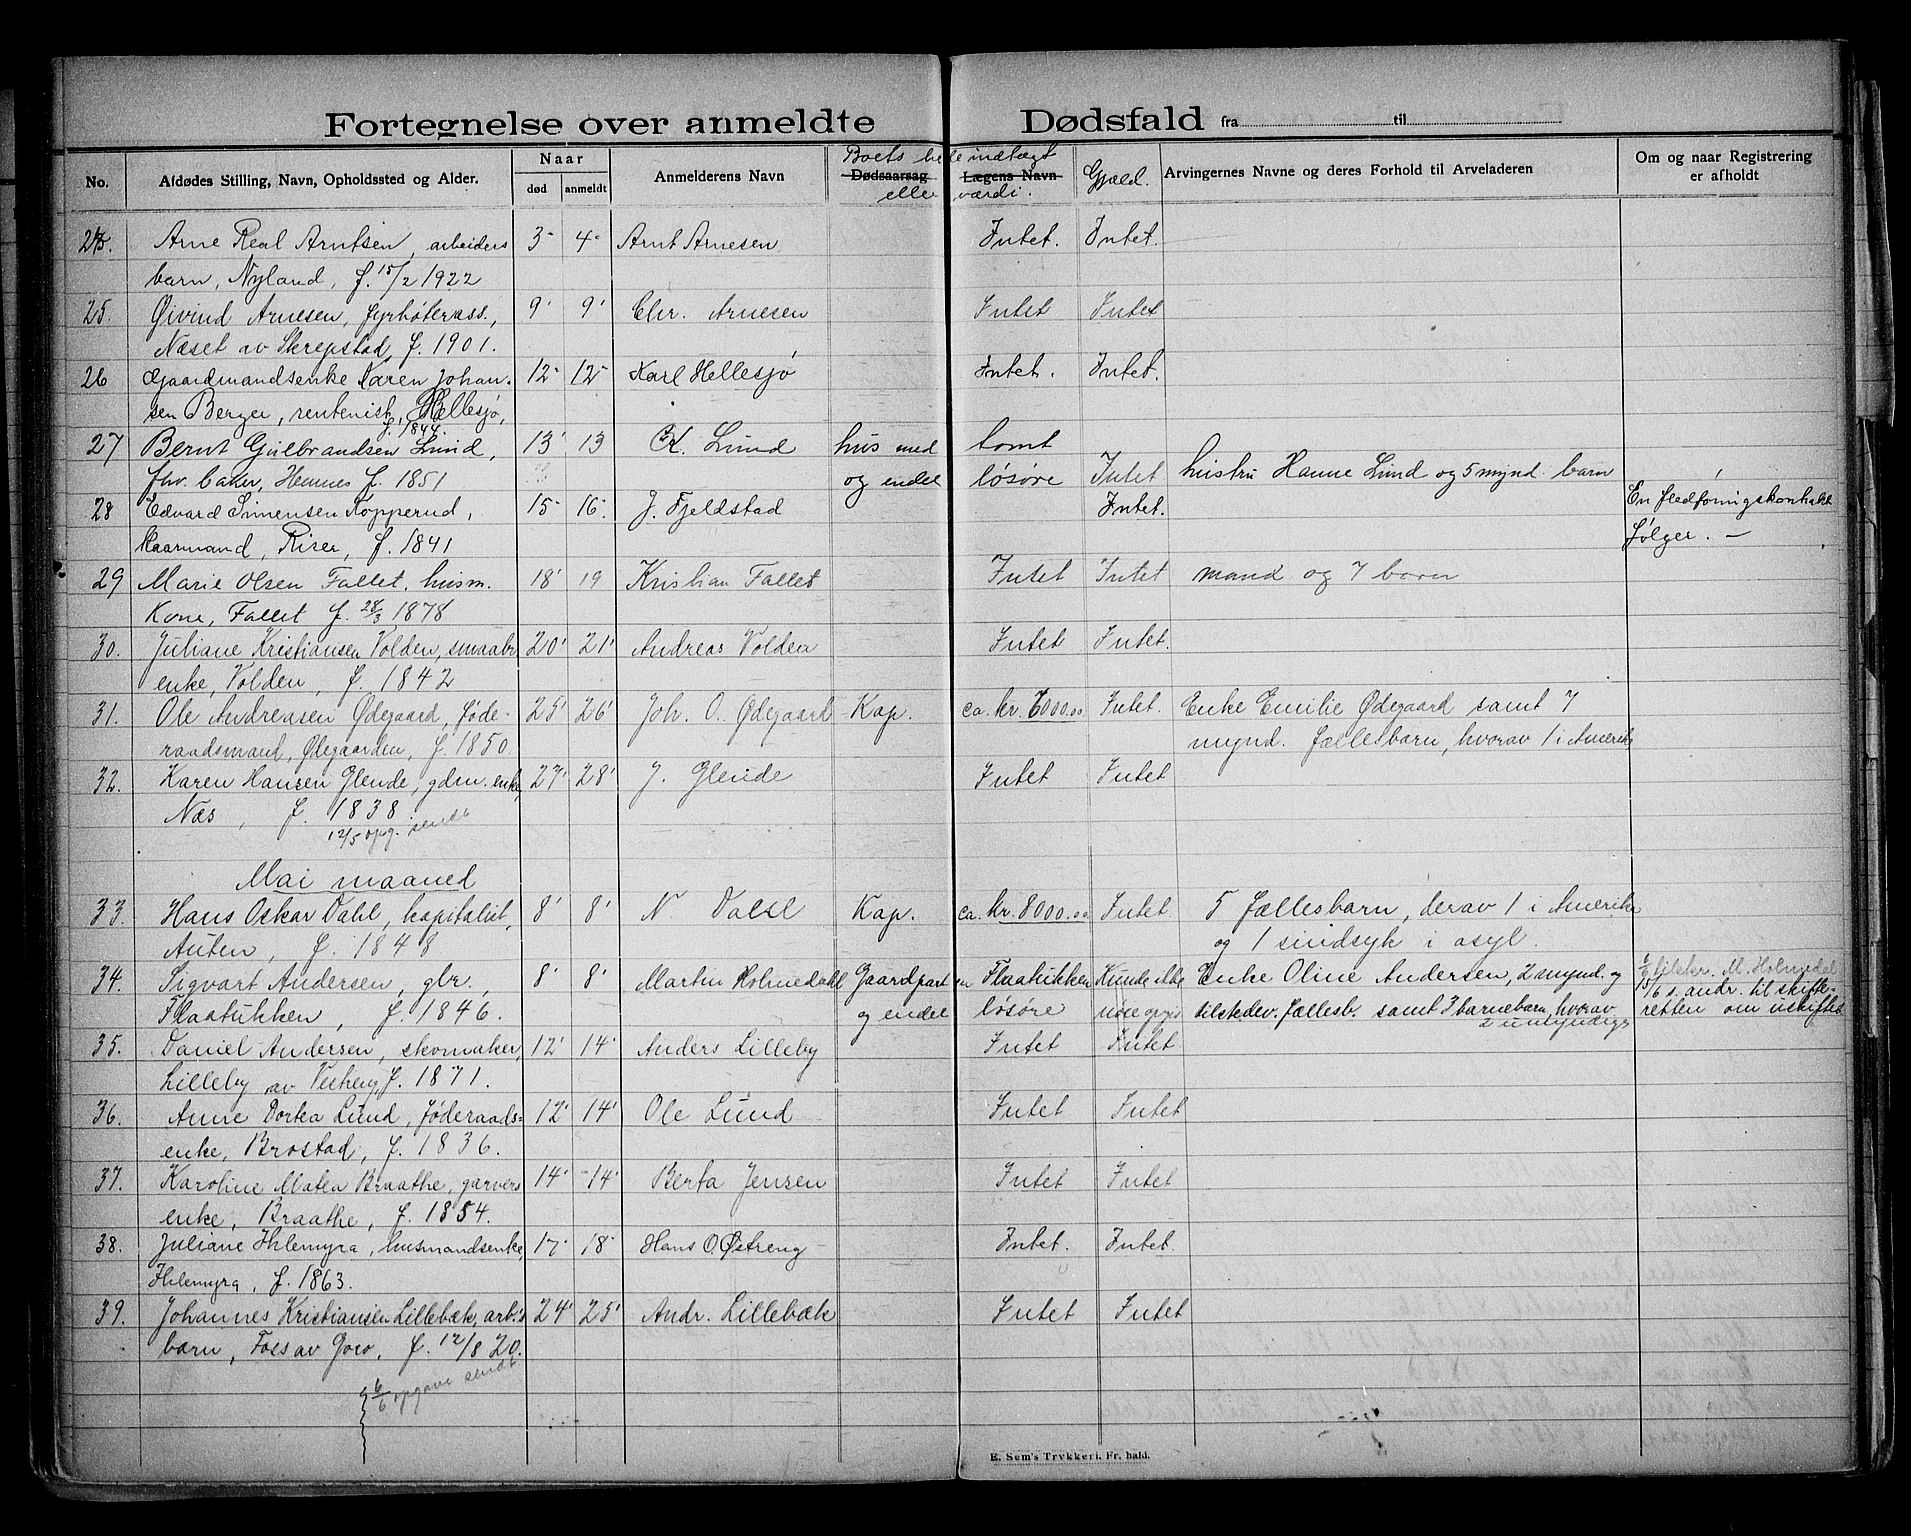 Fortegnelse over anmeldte Dødsfald fra til
No. Afdødes Stilling, Navn, Opholdssted og Alder. Naar død anmeldt Anmelderens Navn Dødsaarsag Lægens Navn Arvingernes Navne og deres Forhold til Arveladeren Om og naar Registrering er afholdt
Boets indtægt eller værdi. Gjæld.
24. Arne Real Arntsen, arbeiders 3 4 Arnt Arnesen Intet. Intet.
barn, Nyland, f. 15/2 1922
25. Øivind Arnesen, fyrbøterass., 9 9 Chr. Arnesen Intet Intet
Næset av Skrepstad, f. 1901.
26 Gaardmandsenke Karen Johan- 12 12 Karl Hellesjø Intet. Intet.
sen Berger, rentenist, Hellesjø,
f. 1844.
27 Bernt Gulbrandsen Lund, 13 13 K. Lund hus med tomt
fhv. baker, Hemnes f. 1851 og endel løsøre Intet hustru Hanne Lund og 5 mynd. barn
28 Edvard Simensen Kopperud, 15 16 J. Fjeldstad Intet. En flødføringskontrakt
kaarmand, Riser, f. 1841 følger. —
29 Marie Olsen Fallet, husm. 18 19 Kristian Fallet Intet Intet mand og 7 barn
Kone, Fallet f. 28/3 1878
30. Juliane Kristiansen Volden, smaabr. 20 21 Andreas Volden Intet Intet.
enke, Volden, f. 1842
31. Ole Andreasen Ødegaard, føde- 25 26 Joh. O. Ødegaard Kap. ca. kr. 6000.00 Intet. Enke Emilie Ødegaard samt 7
raadsmand, Ødegaarden, f. 1850. mynd. fællesbarn, hvorav 1 i Amerika
32. Karen Hansen Glende, gdm. enke, 27 28 J. Glende Intet Intet
Næs, f. 1838
12/5 opg. sendt
Mai maaned
33. Hans Oskar Dahl, kapitalist, 8 8 N Dahl Kap. ca. kr. 8000.00 Intet. 5 fællesbarn, derav 1 i Amerika
Auten, f. 1848 og 1 sindsyk i asyl.
34. Sigvart Andersen, gbr., 8 8 Martin Holmedahl Gaardparten Flaatukken Kunde ikke Enke Oline Andersen, 2 mynd. og E tilstr. M. Holmedal
Flaatukken, f. 1846. og endel løsøre nøie opgis tilstedev. fællesb. samt 3 barnebarn, hvorav 15/6 s. andr. til skifte-
2 umyndige retten om uskiftet
35. Daniel Andersen, skomaker, 12 14 Anders Lilleby Intet Intet
Lilleby av Vestreng, f. 1871.
36. Anne Dorka Lund, føderaads- 12 14 Ole Lund Intet Intet
enke, Brostad, f. 1836.
37. Karoline Matea Braathe, garver 14 14 Berta Jensen Intet Intet
enke, Braathe, f. 1854.
38. Juliane Ihlemyra, husmandsenke, 17 18 Hans O. Østreng Intet. Intet.
Ihlemyra, f. 1863.
39. Johannes Kristiansen Lillebæk, arb.'s 24 25 Andr. Lillebæk Intet Intet
barn, Foss av Goro, f. 12/8 20.
6/6 opgave sendt
E. Sem's Trykkeri, Fr.hald.